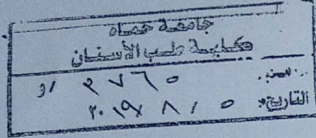 جامعة حماه
كلية طب الأسنان
٢٧٦٥ /و
التاريخ: ٢٠١٩/٨/٥